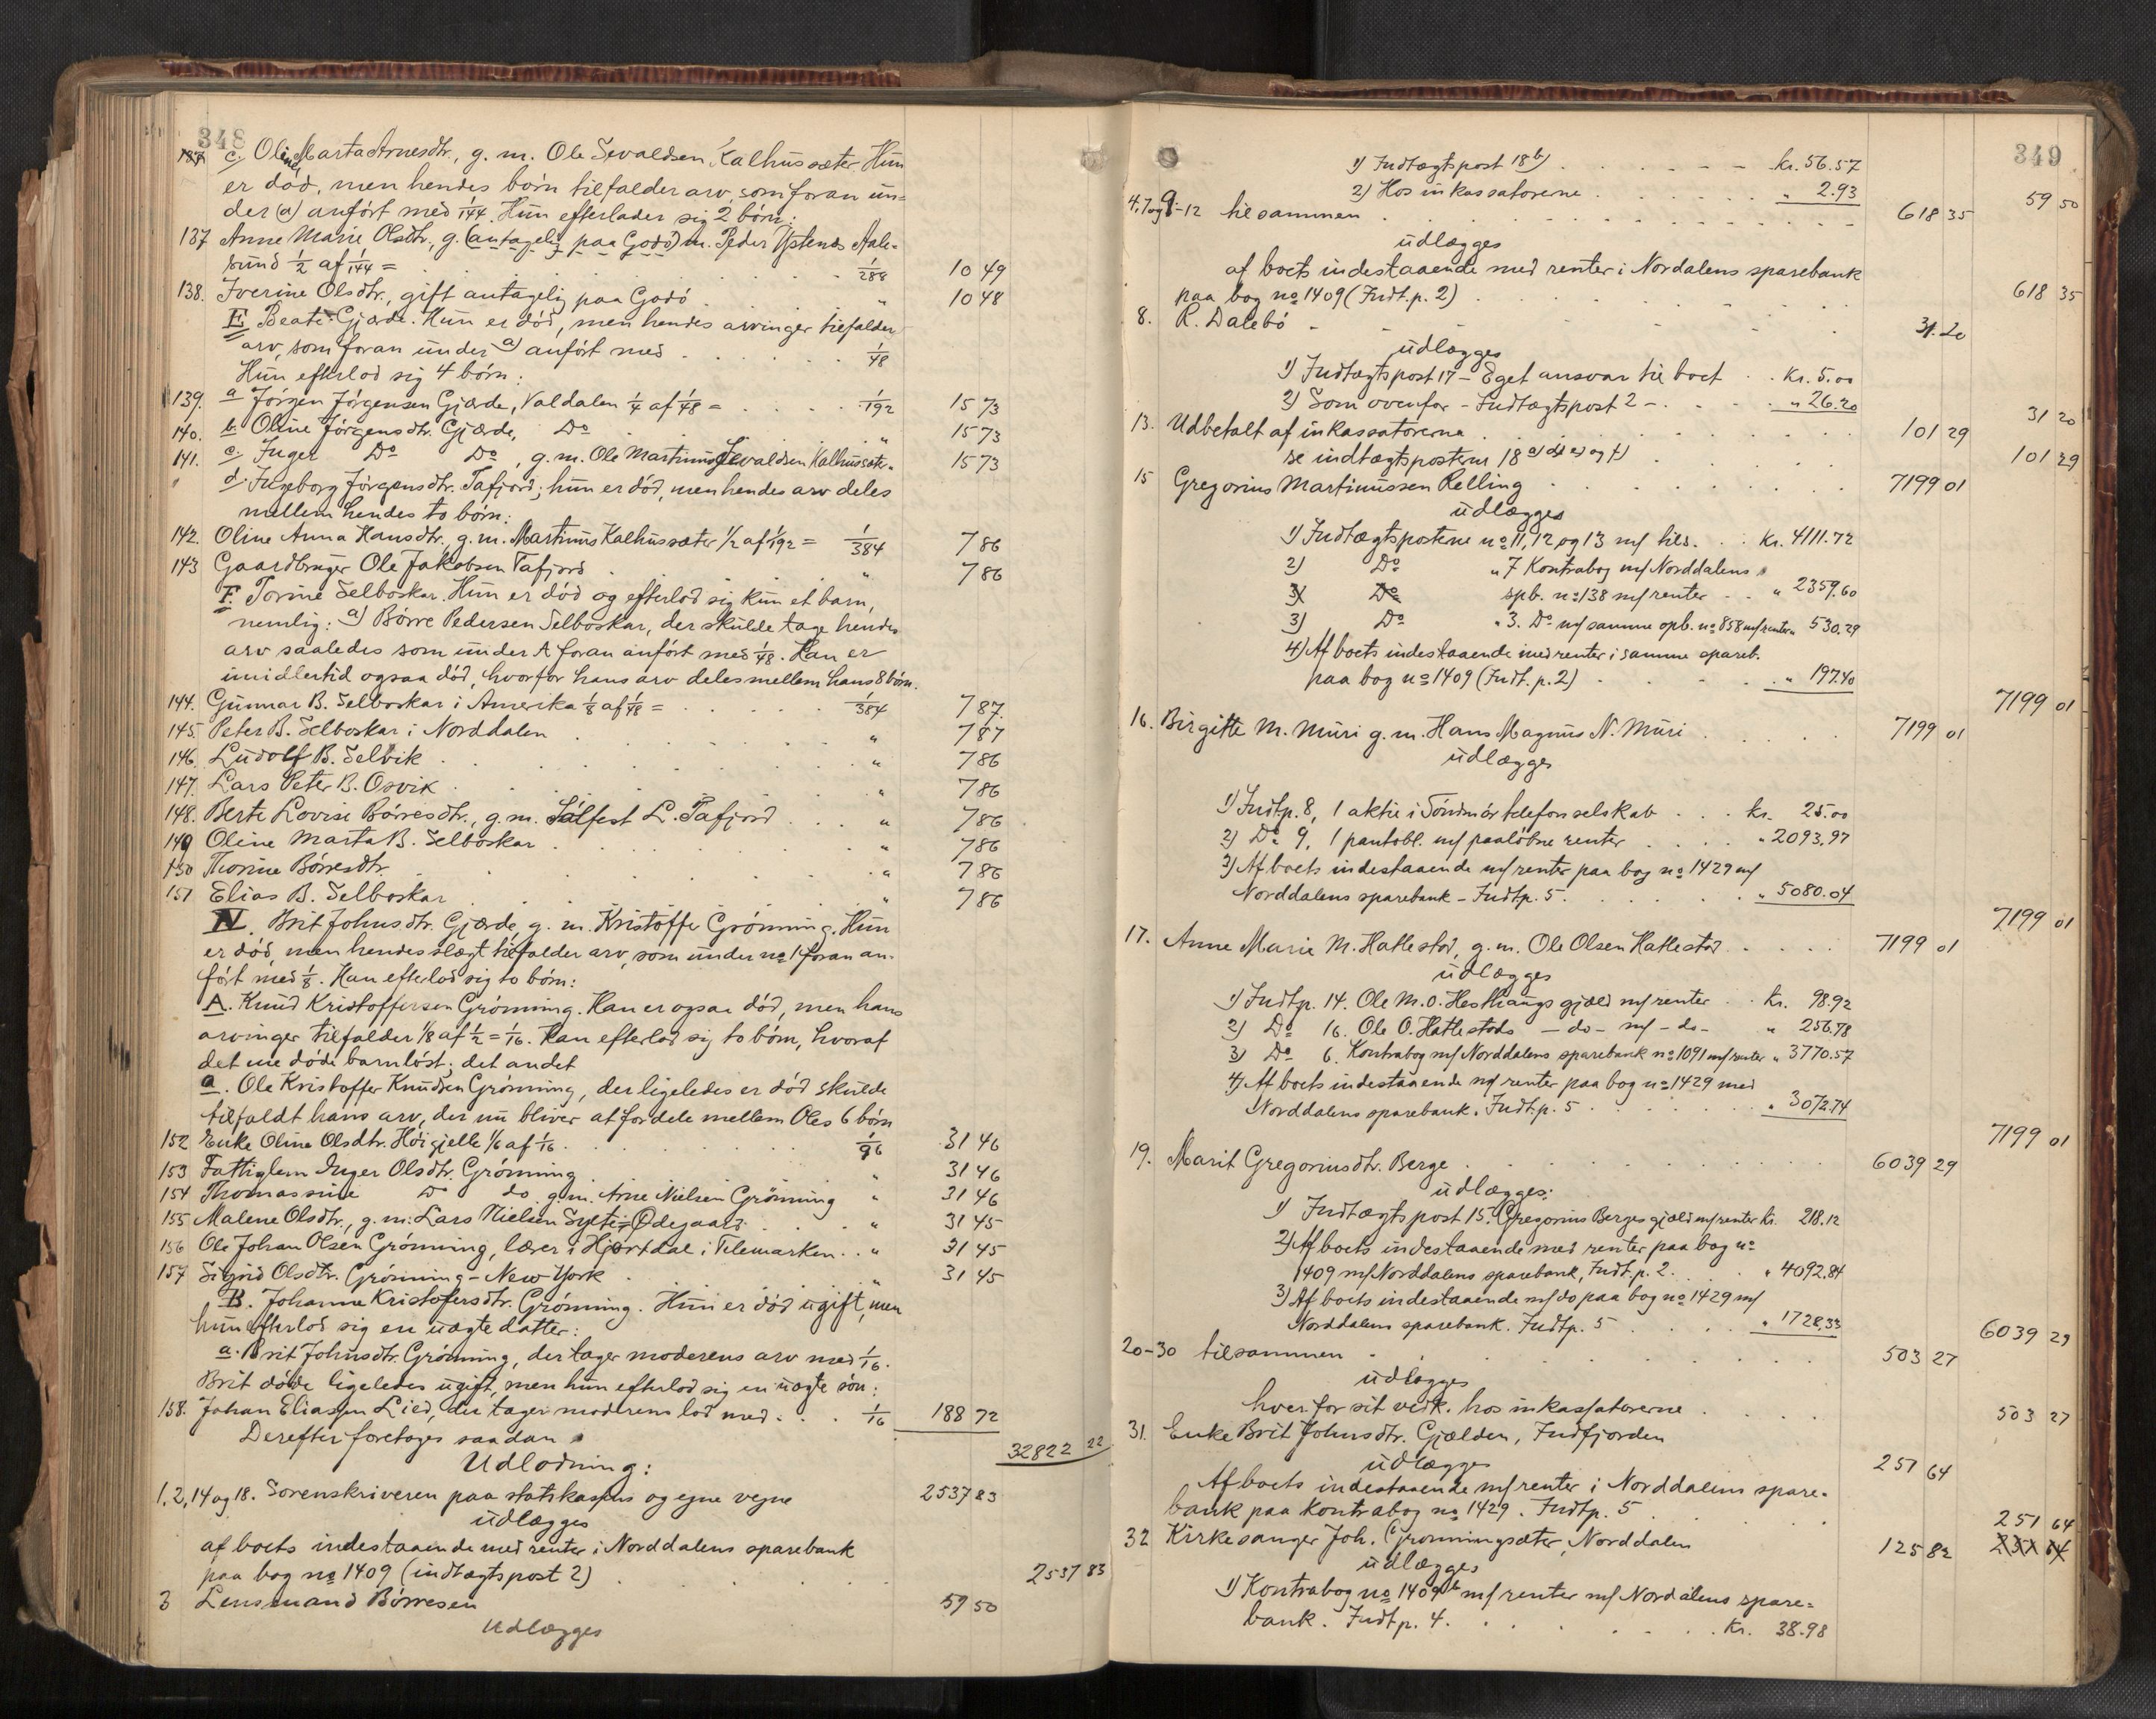 348
137 c. Oline Marta Arnesdtr., g. m. Ole Sevaldsen Kalhussæter. Hun
er död, men hendes börn tilfalder arv, som foran un-
der (a) anfört med 1/144. Hun efterlader sig 2 börn:
137 Anne Marie Olsdtr., g. (antagelig paa Godö) m. Peder Ystenes Aale-
sund 1/2 af 1/144 = . . . 1/288 10 49
138. Iverine Olsdtr., gift antagelig paa Godö . " 10 48
E Beate Gjærde. Hun er död, men hendes arvinger tilfalder
arv, som foran under a) anfört med . . . 1/48
Hun efterlod sig 4 börn:
139. a Jörgen Jörgensen Gjærde, Valdalen 1/4 af 1/48 = . . . 1/192 15 73
140. b Oline Jörgensdtr. Gjærde, Do . . " 15 73
141. c. Inger Do Do, g. m. Ole Martinus Sevaldsen Kalhussæter " 15 73
d. Ingeborg Jörgensdtr. Tafjord; hun er död, men hendes arv deles
mellem hendes to börn:
142. Oline Anna Hansdtr., g. m. Martinus Kalhussæter 1/2 af 1/192 = 1/384 7 86
143 Gaardbruger Ole Jakobsen Tafjord . . " 7 86
F. Torine Selboskar. Hun er död og efterlod sig kun et barn,
nemlig: a) Börre Pedersen Selboskar, der skulde tage hendes
arv saaledes som under A foran anfört med 1/48. Han er
imidlertid ogsaa död, hvorfor hans arv deles mellem hans 8 börn.
144. Gunnar B. Selboskar i Amerika 1/8 af 1/48 = . . . 1/384 7 87
145. Peter B. Selboskar i Norddalen . . . " 7 87
146. Ludolf B. Selvik . . . " 7 86
147. Lars Peter B. Osvik . . . " 7 86
148. Berte Lovise Börresdtr., g. m. Salfest L. Tafjord . . . " 7 86
149 Oline Marta B. Selboskar . . . " 7 86
150 Thorine Börresdtr. . . . " 7 86
151 Elias B. Selboskar . . . " 7 86
IV. Brit Johnsdtr. Gjærde, g. m. Kristoffer Grönning. Hun
er död, men hendes slægt tilfalder arv, som under no 1 foran an-
fört med 1/8. Han efterlod sig to börn:
A. Knud Kristoffersen Grönning. Han er ogsaa död, men hans
arvinger tilfalder 1/8 af 1/2 = 1/16. Han efterlod sig to börn, hvoraf
det ene döde barnlöst; det andet
a. Ole Kristoffer Knudsen Grönning, der ligeledes er död skulde
tilfaldt hans arv, der nu bliver at fordele mellem Oles 6 börn
152 Enke Oline Olsdtr. Höigjelle 1/6 af 1/16 . . . 1/96 31 46
153 Fattiglem Inger Olsdtr. Grönning . . . " 31 46
154 Thomassine Do do g. m. Arne Nielsen Grönning " 31 46
155 Malene Olsdtr., g. m. Lars Nielsen Sylte-Ödegaard . . . " 31 45
156 Ole Johan Olsen Grönning, lærer i Hjørtdal i Telemarken . . " 31 45
157 Sigrid Olsdtr. Grönning - New York . . . " 31 45
B. Johanne Kristofersdtr. Grönning. Hun er död ugift, men
hun efterlod sig en uægte datter:
a. Brit Johnsdtr. Grönning, der tager moderens arv med 1/16.
Brit döde ligeledes ugift, men hun efterlod sig en uægte sön:
158. Johan Eliassen Lied, der tager moderens lod med . . . 1/16 188 72
Derefter foretages saadan
32822 22
Udlodning:
1, 2, 14 og 18. Sorenskriveren paa statskassens og egne vegne 2537 83
udlægges
af boets indestaaende med renter i Norddalens sparebank
paa bog no 1409 (indtægtspost 2) . . . 2537 83
3 Lensmand Börresen 59 50
Udlægges
349
1) Indtægtspost 18 b) . . . kr. 56.57
2) Hos inkassatorerne . . . " 2.93
59 50
4, 7 og 9-12 tilsammen . . . 618 35
udlægges
af boets indestaaende med renter i Nordalens sparebank
paa bog no 1409 (Indt. p. 2) . . . 618 35
8. R. Dalebö . . . 31.20
udlægges
1) Indtægtspost 17 - Eget ansvar til boet . . Kr. 5.00
2) Som ovenfor - Indtægtspost 2 - . . " 26.20
31 20
13. Udbetalt af inkassatorerne . . . 101 29
se indtægtsposterne 18 a) d) e) og f) . . . 101 29
15 Gregorius Martinussen Relling . . . 7199 01
udlægges
1) Indtægtsposterne no 11, 12 og 13 m/ tils. . . Kr. 4111.72
2) Do " 7 Kontrabog m/ Norddalens
3) Do spb. no 138 m/ renter . . " 2359.60
3) Do " 3. Do m/ samme spb. no 858 m/ renter " 530.29
4) Af boets indestaaende med renter i samme spareb.
paa bog no 1409 (Indt. p. 2) . . . " 197.40
7199 01
16. Birgitte M. Muri g. m. Hans Magnus N. Muri . . . 7199 01
udlægges
1) Indtp. 8, 1 aktie i Söndmör telefonselskab . . . kr. 25.00
2) Do 9, 1 pantobl. m/ paaløbne renter . . . " 2093.97
3) Af boets indestaaende m/ renter paa bog no 1429 m/
Norddalens sparebank - Indtp. 5. . . . " 5080.04
7199 01
17. Anne Marie M. Hattestad, g. m. Ole Olsen Hattestad . . . 7199 01
udlægges
1) Indtp. 14. Ole M. O. Hesthaugs gjæld m/ renter . . Kr. 98.92
2) Do 16. Ole O. Hattestads - do - m/ - do - " 256.78
3) Do 6. Kontrabog m/ Norddalens sparebank no 1091 m/ renter " 3770.57
4) Af boets indestaaende m/ renter paa bog no 1429 med
Norddalens sparebank. Indt. p. 5 . . . " 3072.74
7199 01
19. Marit Gregoriusdtr. Berge . . . 6039 29
udlægges:
1) Indtægtspost 15. Gregorius Berges gjæld m/ renter kr. 218.12
2) Af boets indestaaende med renter paa bog no
1409 m/ Norddalens sparebank, Indt. p. 2. . . " 4092.84
3) Af boets indestaaende m/ do paa bog no 1429 m/
Norddalens sparebank. Indtp. 5 . . . " 1728.33
6039 29
20-30 tilsammen . . . 503 27
udlægges
hver for sit vedk. hos inkassatorerne . . . 503 27
31. Enke Brit Johnsdtr. Gjælden, Indfjorden
udlægges 251 64
Af boets indestaaende m/ renter i Norddalens spare-
bank paa kontrabog no 1429. Indtp. 5 . . . 251 64
32 Kirkesanger Joh. Grönningsæter, Norddalen 125 82 251 64
udlægges
1) Kontrabog no 1409 b m/ renter m/ Nordalens spare-
bank. Indtp. 4. . . . Kr. 38.98